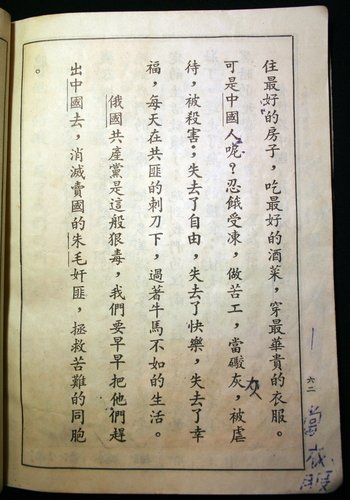 住最好的房子，吃最好的酒菜，穿最華貴的衣服。
可是中國人呢？忍餓受凍，做苦工，當礮灰，被虐
待，被殺害；失去了自由，失去了快樂，失去了幸
福，每天在共匪的刺刀下，過著牛馬不如的生活。
俄國共產黨是這般狠毒，我們要早早把他們趕
出中國去，消滅賣國的朱毛奸匪，拯救苦難的同胞
。
六二